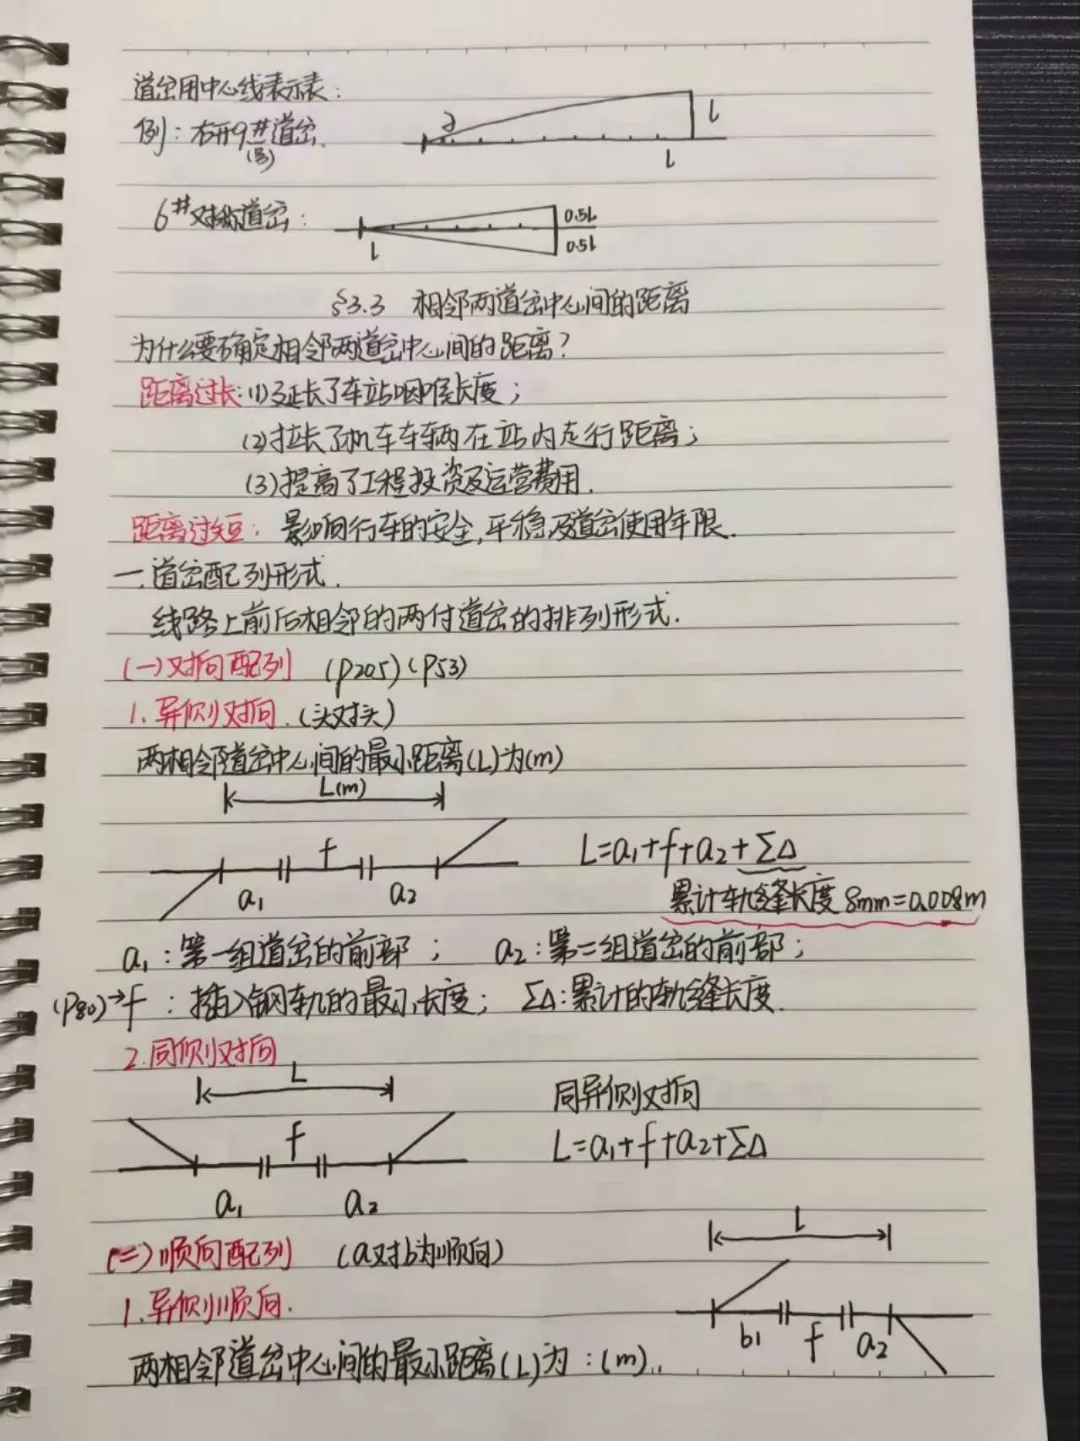 道岔用中心线表示表:
例: 右开9#道岔.
(号)
2
l
l
6#对称道岔:
0.5L
0.5L
l
§3.3 相邻两道岔中心间的距离
为什么要确定相邻两道岔中心间的距离?
距离过长:(1)延长了车站咽喉长度;
(2)拉长了机车车辆在站内走行距离;
(3)提高了工程投资及运营费用.
距离过短: 影响行车的安全,平稳及道岔使用年限.
一.道岔配列形式.
线路上前后相邻的两付道岔的排列形式.
(一)对向配列 (P205)(P53)
1. 异侧对向.(头对头)
两相邻道岔中心间的最小距离(L)为(m)
L(m)
f
a₁ a₂
L=a₁+f+a₂+ΣΔ
累计轨缝长度 8mm=0.008m
a₁:第一组道岔的前部; a₂:第二组道岔的前部;
(P80)→f :插入钢轨的最小长度; ΣΔ:累计的轨缝长度.
2.同侧对向
L
f
a₁ a₂
同异侧对向
L=a₁+f+a₂+ΣΔ
(二)顺向配列 (a对b为顺向)
1.异侧顺向.
L
b₁ f a₂
两相邻道岔中心间的最小距离(L)为:(m).